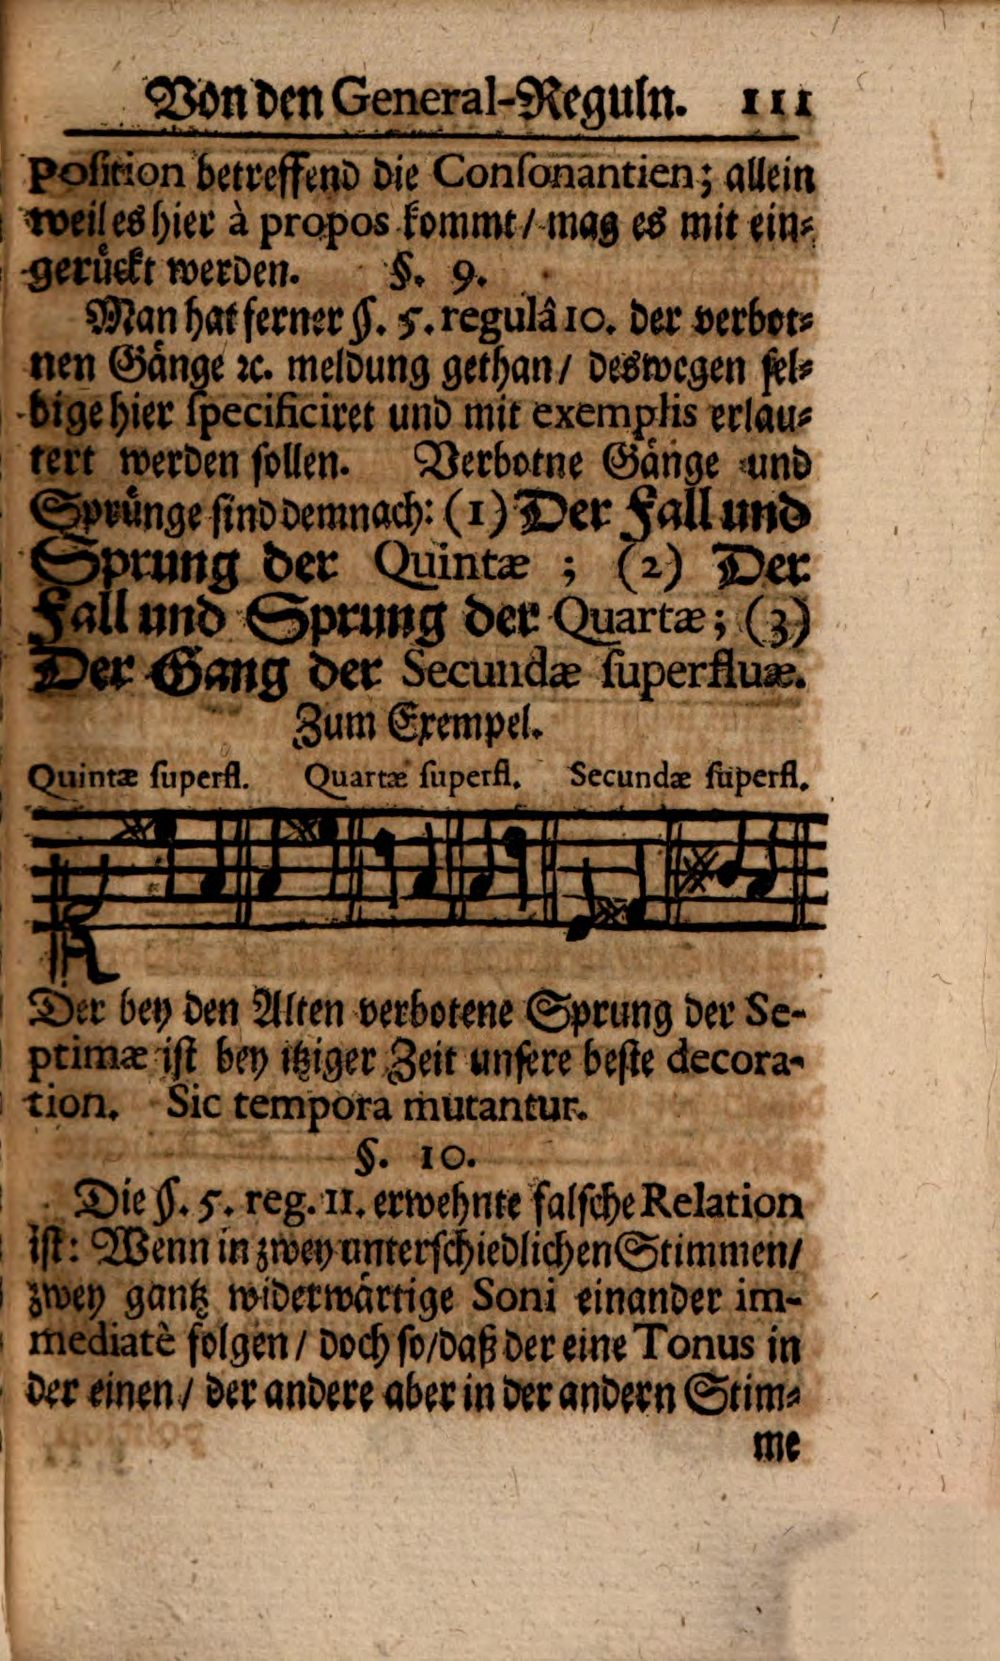 Von den General-Reguln. 111
position betreffend die Consonantien; allein
weil es hier à propos kommt / mag es mit ein⸗
gerückt werden. §. 9.
Man hat ferner §. 5. regulâ 10. der verbot⸗
nen Gänge ꝛc. meldung gethan / deswegen sel⸗
bige hier specificiret und mit exemplis erläu⸗
tert werden sollen. Verbotne Gänge und
Sprünge sind demnach: (1) Der Fall und
Sprung der Quintæ ; (2) Der
Fall und Sprung der Quartæ; (3)
Der Gang der Secundæ superfluæ.
Zum Exempel.
Quintæ superfl. Quartæ superfl. Secundæ superfl.
Der bey den Alten verbotene Sprung der Se-
ptimæ ist bey itziger Zeit unsere beste decora-
tion. Sic tempora mutantur.
§. 10.
Die §. 5. reg. 11. erwehnte falsche Relation
ist: Wenn in zwey unterschiedlichen Stimmen /
zwey gantz widerwärtige Soni einander im-
mediatè folgen / doch so / daß der eine Tonus in
der einen / der andere aber in der andern Stim⸗
me